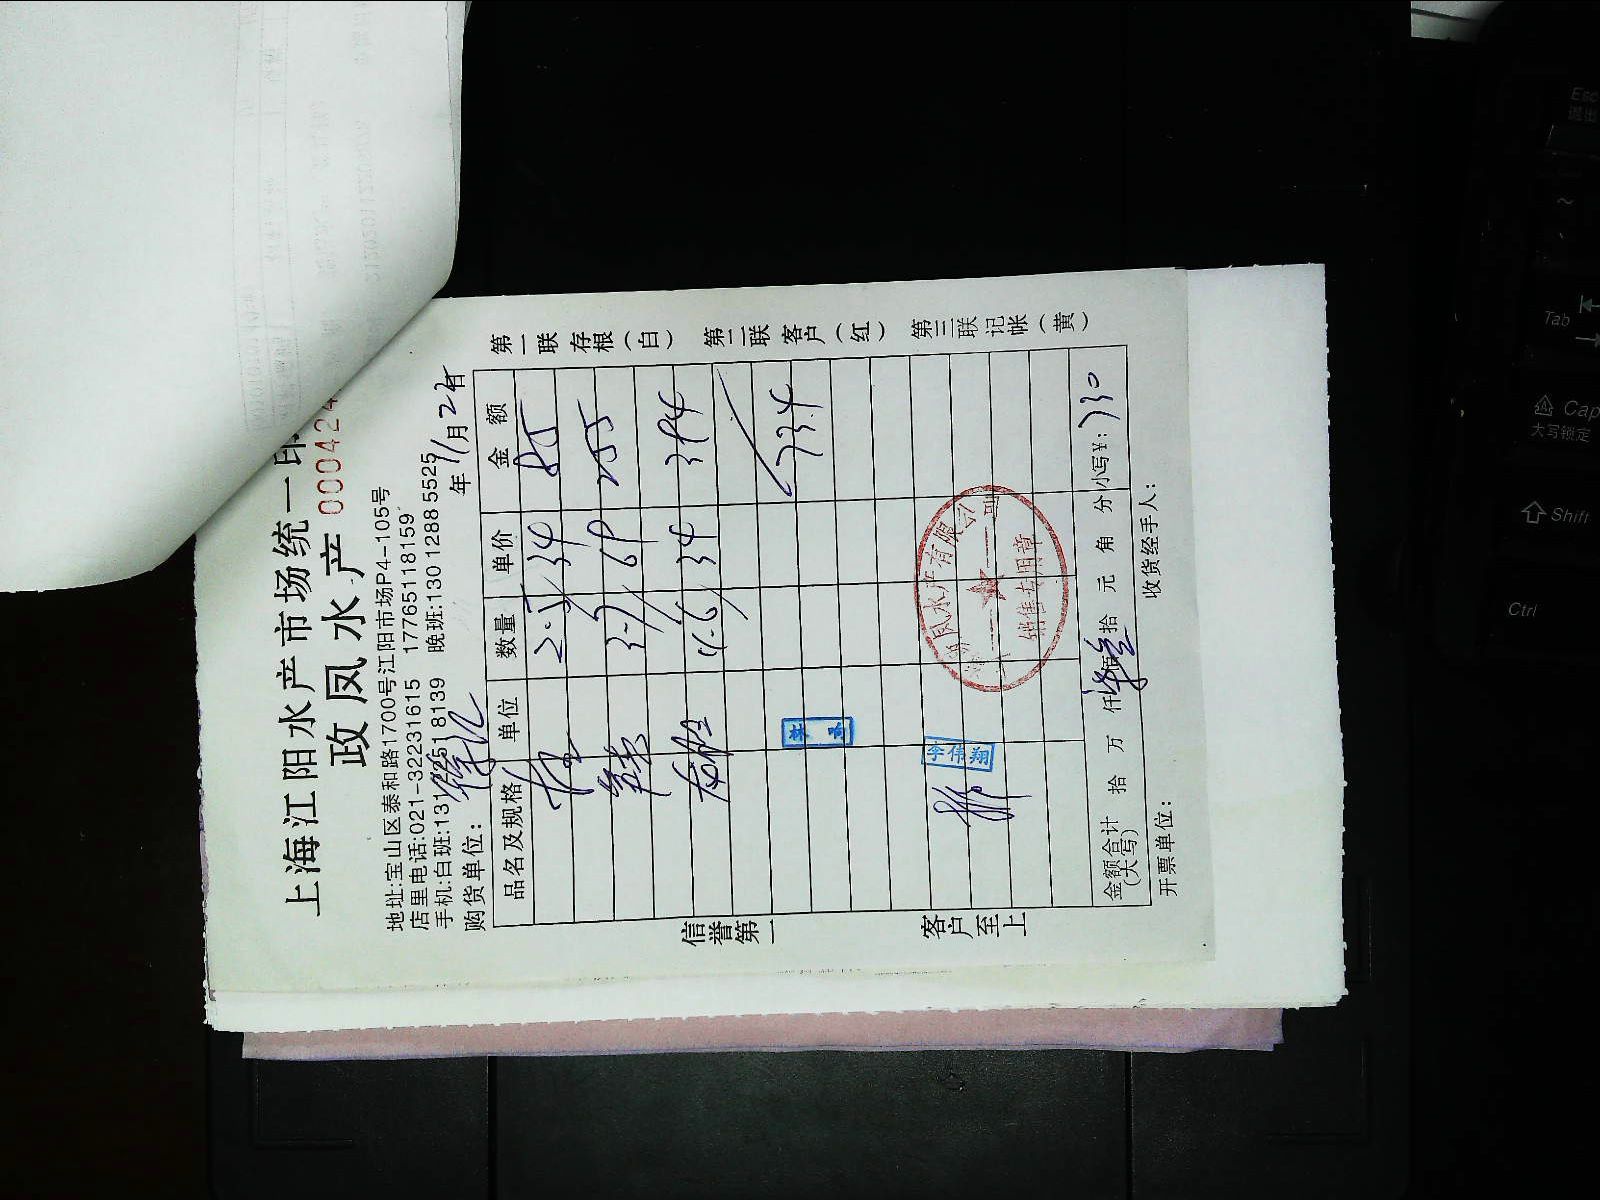 上海江阳水产市场统一印
政凤水产 000424
地址:宝山区泰和路1700号江阳市场P4-105号
店里电话:021-32231615 17765118159
手机:白班:131 22518139 晚班:13012885525
购货单位: 年 11月 2日
品名及规格 单位 数量 单价 金额
2.5 34 85
3.7 69 255
11.6 34 394
734
李伟翔
凤水产有限公司
销售专用章
金额合计(大写) 拾 万 仟 佰 拾 元 角 分 小写¥: 730
开票单位: 收货经手人:
第一联存根(白) 第二联客户(红) 第三联记帐(黄)
信誉第一
客户至上
Esc
Tab
Cap
大写锁定
Shift
Ctrl